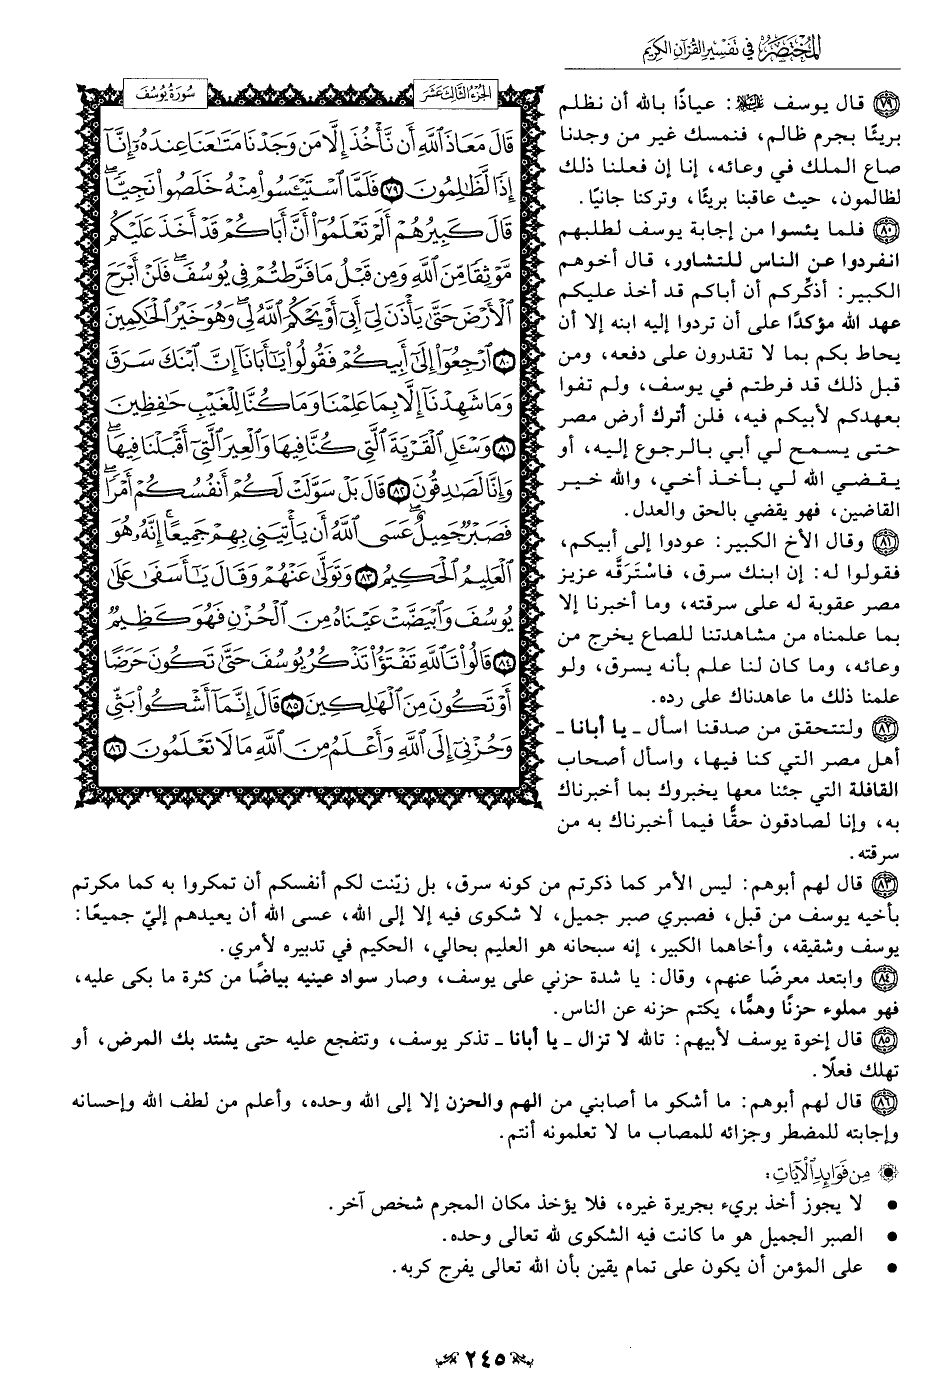 المختصر في تفسير القرآن الكريم
سورة يوسف
الجزء الثالث عشر
قَالَ مَعَاذَ ٱللَّهِ أَن نَّأْخُذَ إِلَّا مَن وَجَدْنَا مَتَٰعَنَا عِندَهُۥٓ إِنَّآ
إِذًا لَّظَٰلِمُونَ ٧٩ فَلَمَّا ٱسْتَيْـَٔسُوا۟ مِنْهُ خَلَصُوا۟ نَجِيًّا ۖ
قَالَ كَبِيرُهُمْ أَلَمْ تَعْلَمُوٓا۟ أَنَّ أَبَاكُمْ قَدْ أَخَذَ عَلَيْكُم
مَّوْثِقًا مِّنَ ٱللَّهِ وَمِن قَبْلُ مَا فَرَّطتُمْ فِي يُوسُفَ ۖ فَلَنْ أَبْرَحَ
ٱلْأَرْضَ حَتَّىٰ يَأْذَنَ لِيٓ أَبِيٓ أَوْ يَحْكُمَ ٱللَّهُ لِي ۖ وَهُوَ خَيْرُ ٱلْحَٰكِمِينَ
٨٠ ٱرْجِعُوٓا۟ إِلَىٰٓ أَبِيكُمْ فَقُولُوا۟ يَٰٓأَبَانَآ إِنَّ ٱبْنَكَ سَرَقَ
وَمَا شَهِدْنَآ إِلَّا بِمَا عَلِمْنَا وَمَا كُنَّا لِلْغَيْبِ حَٰفِظِينَ
٨١ وَسْـَٔلِ ٱلْقَرْيَةَ ٱلَّتِي كُنَّا فِيهَا وَٱلْعِيرَ ٱلَّتِيٓ أَقْبَلْنَا فِيهَا ۖ
وَإِنَّا لَصَٰدِقُونَ ٨٢ قَالَ بَلْ سَوَّلَتْ لَكُمْ أَنفُسُكُمْ أَمْرًا ۖ
فَصَبْرٌ جَمِيلٌ ۖ عَسَى ٱللَّهُ أَن يَأْتِيَنِي بِهِمْ جَمِيعًا ۚ إِنَّهُۥ هُوَ
ٱلْعَلِيمُ ٱلْحَكِيمُ ٨٣ وَتَوَلَّىٰ عَنْهُمْ وَقَالَ يَٰٓأَسَفَىٰ عَلَىٰ
يُوسُفَ وَٱبْيَضَّتْ عَيْنَاهُ مِنَ ٱلْحُزْنِ فَهُوَ كَظِيمٌ
٨٤ قَالُوا۟ تَٱللَّهِ تَفْتَؤُا۟ تَذْكُرُ يُوسُفَ حَتَّىٰ تَكُونَ حَرَضًا
أَوْ تَكُونَ مِنَ ٱلْهَٰلِكِينَ ٨٥ قَالَ إِنَّمَآ أَشْكُوا۟ بَثِّي
وَحُزْنِيٓ إِلَى ٱللَّهِ وَأَعْلَمُ مِنَ ٱللَّهِ مَا لَا تَعْلَمُونَ ٨٦
٧٩ قال يوسف عليه السلام: عياذًا بالله أن نظلم
بريئًا بجرم ظالم، فنمسك غير من وجدنا
صاع الملك في وعائه، إنا إن فعلنا ذلك
لظالمون، حيث عاقبنا بريئًا، وتركنا جانيًا.
٨٠ فلما يئسوا من إجابة يوسف لطلبهم
انفردوا عن الناس للتشاور، قال أخوهم
الكبير: أذكِّركم أن أباكم قد أخذ عليكم
عهد الله مؤكدًا على أن تردوا إليه ابنه إلا أن
يحاط بكم بما لا تقدرون على دفعه، ومن
قبل ذلك قد فرطتم في يوسف، ولم تفوا
بعهدكم لأبيكم فيه، فلن أترك أرض مصر
حتى يسمح لي أبي بالرجوع إليه، أو
يقضي الله لي بأخذ أخي، والله خير
القاضين، فهو يقضي بالحق والعدل.
٨١ وقال الأخ الكبير: عودوا إلى أبيكم،
فقولوا له: إن ابنك سرق، فاسْتَرَقَّه عزيز
مصر عقوبة له على سرقته، وما أخبرنا إلا
بما علمناه من مشاهدتنا للصاع يخرج من
وعائه، وما كان لنا علم بأنه يسرق، ولو
علمنا ذلك ما عاهدناك على رده.
٨٢ ولتتحقق من صدقنا اسأل ـ يا أبانا ـ
أهل مصر التي كنا فيها، واسأل أصحاب
القافلة التي جئنا معها يخبروك بما أخبرناك
به، وإنا لصادقون حقًّا فيما أخبرناك به من
سرقته.
٨٣ قال لهم أبوهم: ليس الأمر كما ذكرتم من كونه سرق، بل زيّنت لكم أنفسكم أن تمكروا به كما مكرتم
بأخيه يوسف من قبل، فصبري صبر جميل، لا شكوى فيه إلا إلى الله، عسى الله أن يعيدهم إليّ جميعًا:
يوسف وشقيقه، وأخاهما الكبير، إنه سبحانه هو العليم بحالي، الحكيم في تدبيره لأمري.
٨٤ وابتعد معرضًا عنهم، وقال: يا شدة حزني على يوسف، وصار سواد عينيه بياضًا من كثرة ما بكى عليه،
فهو مملوء حزنًا وهمًّا، يكتم حزنه عن الناس.
٨٥ قال إخوة يوسف لأبيهم: تالله لا تزال ـ يا أبانا ـ تذكر يوسف، وتتفجع عليه حتى يشتد بك المرض، أو
تهلك فعلًا.
٨٦ قال لهم أبوهم: ما أشكو ما أصابني من الهم والحزن إلا إلى الله وحده، وأعلم من لطف الله وإحسانه
وإجابته للمضطر وجزائه للمصاب ما لا تعلمونه أنتم.
من فوائد الآيات:
• لا يجوز أخذ بريء بجريرة غيره، فلا يؤخذ مكان المجرم شخص آخر.
• الصبر الجميل هو ما كانت فيه الشكوى لله تعالى وحده.
• على المؤمن أن يكون على تمام يقين بأن الله تعالى يفرج كربه.
٢٤٥